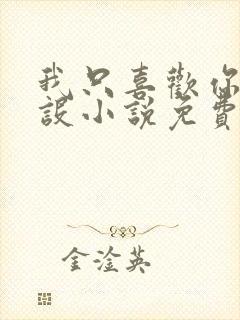 我只喜歡你
設小說免費
金淦英